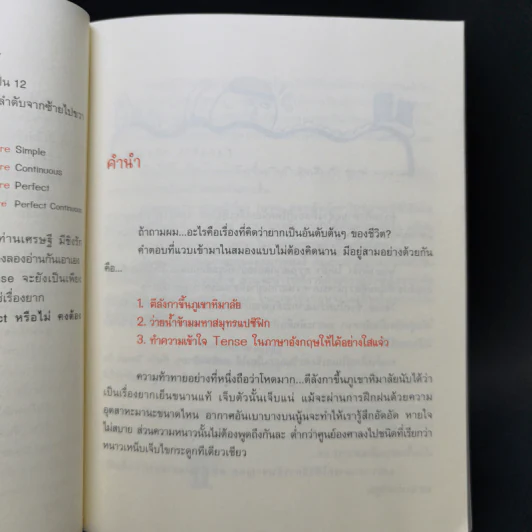 ป็น 12
ลำดับจากซ้ายไปขวา
re Simple
re Continuous
re Perfect
re Perfect Continuous
ท่านเศรษฐี มีชิงรัก
องลองอ่านกันเอาเอง
se จะยังเป็นเพียง
ช่เรื่องยาก
ct หรือไม่ คงต้อง
คำนำ
ถ้าถามผม...อะไรคือเรื่องที่คิดว่ายากเป็นอันดับต้นๆ ของชีวิต?
คำตอบที่แวบเข้ามาในสมองแบบไม่ต้องคิดนาน มีอยู่สามอย่างด้วยกัน
คือ...
1. ตีลังกาขึ้นภูเขาหิมาลัย
2. ว่ายน้ำข้ามมหาสมุทรแปซิฟิก
3. ทำความเข้าใจ Tense ในภาษาอังกฤษให้ได้อย่างใสแจ๋ว
ความท้าทายอย่างที่หนึ่งถือว่าโหดมาก...ตีลังกาขึ้นภูเขาหิมาลัยนับได้ว่า
เป็นเรื่องยากเย็นขนานแท้ เจ็บตัวนั้นเจ็บแน่ แม้จะผ่านการฝึกฝนด้วยความ
อุตสาหะมานะขนาดไหน อากาศอันเบาบางบนนู้นจะทำให้เรารู้สึกอึดอัด หายใจ
ไม่สบาย ส่วนความหนาวนั้นไม่ต้องพูดถึงกันละ ต่ำกว่าศูนย์องศาลงไปชนิดที่เรียกว่า
หนาวเหน็บเจ็บไขกระดูกทีเดียวเชียว